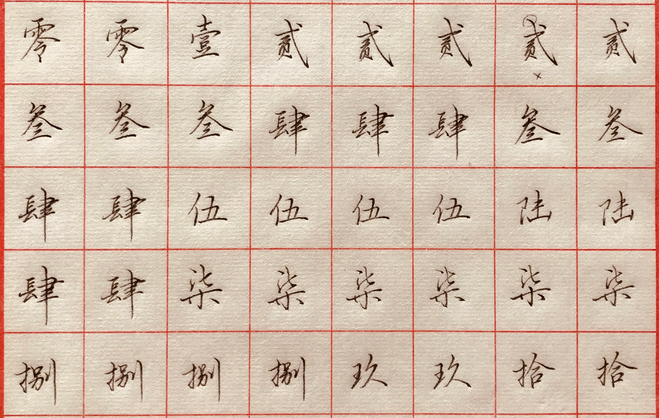 零零壹贰贰贰贰贰
叁叁叁肆肆肆叁叁
肆肆伍伍伍伍陆陆
肆肆柒柒柒柒柒柒
捌捌捌捌玖玖拾拾